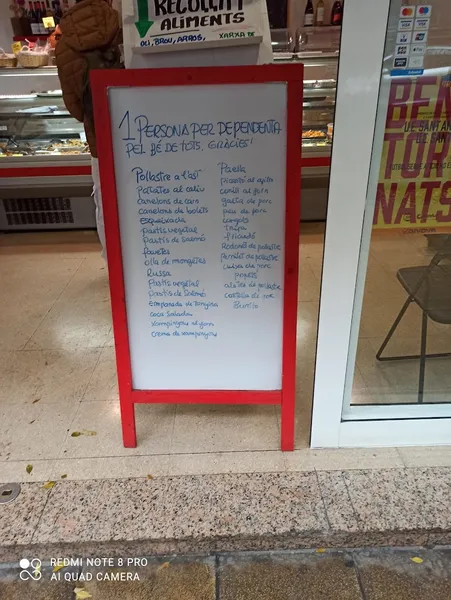 RECOLLIM
ALIMENTS
OLI, BROU, ARRÒS, XARXA DE
1 PERSONA PER DEPENDENTA
PEL BÉ DE TOTS. GRÀCIES!
Pollastre a l'ast
Patates al caliu
canelons de carn
canelons de bolets
esqueixada
pastís vegetal
Pastís de salmó
Favetes
olla de mongetes
Russa
Pastís vegetal
Pastís de salmó
Empanada de tonyina
coca salada
Xampinyons al forn
crema de xampinyons
Paella
conill al forn
galta de porc
peu de porc
cargols
tripa
fricandó
Rodonet de pollastre
Pernilet de pollastre
cuixa de porc
aletes de pollastre
costella de porc
BEN
TIN
NATS
REDMI NOTE 8 PRO
AI QUAD CAMERA